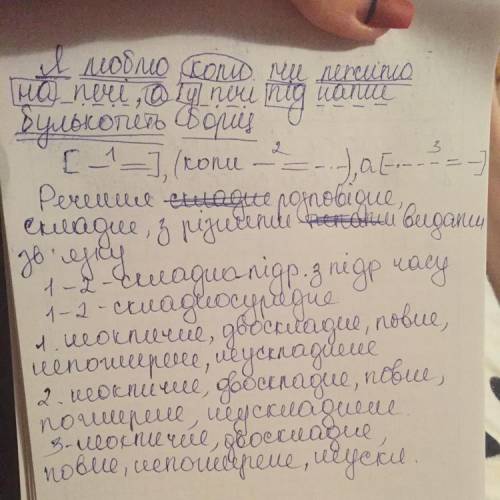 Я люблю коли ми лежимо
на печі, а у печі під нами
булькотить борщ
[ — 1 = ], (коли — 2 = -·-·), а [ -·- -- 3 = — ]
Речення складне розповідне,
складне, з різними видами
зв'язку
1-2-складнапідр. з підр часу
1-2-складносурядне
1. неокличне, двоскладне, повне,
непоширене, неускладнене
2. неокличне, двоскладне, повне,
поширене, неускладнене.
3-неокличне, двоскладне,
повне, непоширене, неускл.